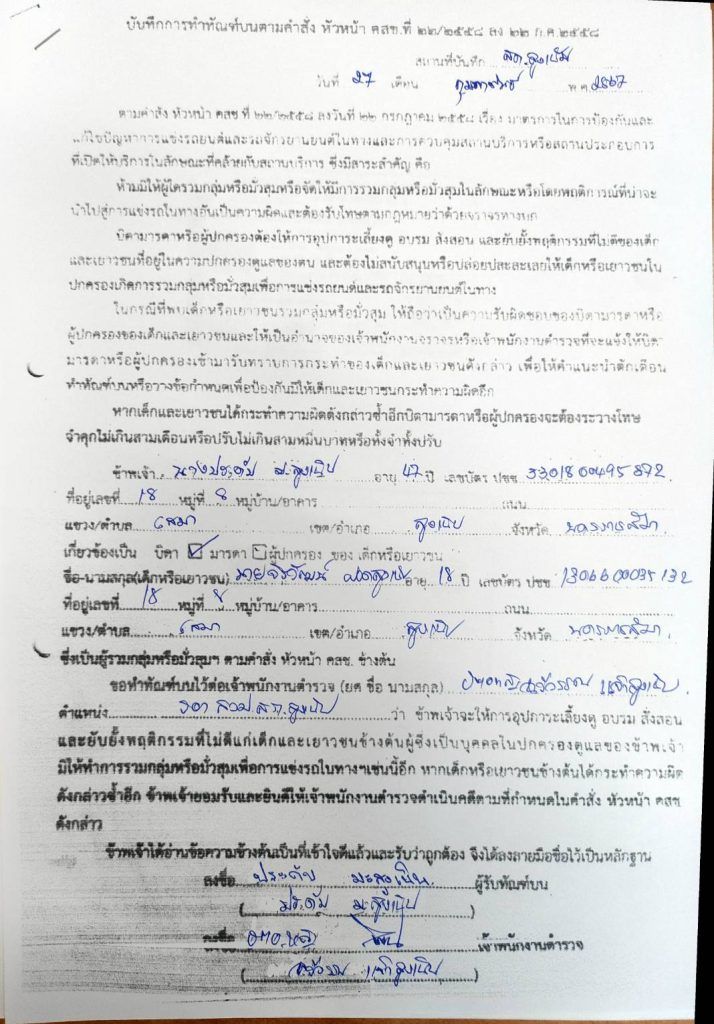 บันทึกการทำทัณฑ์บนตามคำสั่ง หัวหน้า คสช.ที่ ๒๒/๒๕๕๘ ลง ๒๒ ก.ค.๒๕๕๘
สถานที่บันทึก สภ.สูงเนิน
วันที่ 27 เดือน กุมภาพันธ์ พ.ศ. 2567
ตามคำสั่ง หัวหน้า คสช ที่ ๒๒/๒๕๕๘ ลงวันที่ ๒๒ กรกฎาคม ๒๕๕๘ เรื่อง มาตรการในการป้องกันและ
แก้ไขปัญหาการแข่งรถยนต์และรถจักรยานยนต์ในทางและการควบคุมสถานบริการหรือสถานประกอบการ
ที่เปิดให้บริการในลักษณะที่คล้ายกับสถานบริการ ซึ่งมีสาระสำคัญ คือ
ห้ามมิให้ผู้ใดรวมกลุ่มหรือมั่วสุมหรือจัดให้มีการรวมกลุ่มหรือมั่วสุมในลักษณะหรือโดยพฤติการณ์ที่น่าจะ
นำไปสู่การแข่งรถในทางอันเป็นความผิดและต้องรับโทษตามกฎหมายว่าด้วยจราจรทางบก
บิดามารดาหรือผู้ปกครองต้องให้การอุปการะเลี้ยงดู อบรม สั่งสอน และยับยั้งพฤติกรรมที่ไม่ดีของเด็ก
และเยาวชนที่อยู่ในความปกครองดูแลของตน และต้องไม่สนับสนุนหรือปล่อยปละละเลยให้เด็กหรือเยาวชนใน
ปกครองเกิดการรวมกลุ่มหรือมั่วสุมเพื่อการแข่งรถยนต์และรถจักรยานยนต์ในทาง
ในกรณีที่พบเด็กหรือเยาวชนรวมกลุ่มหรือมั่วสุม ให้ถือว่าเป็นความรับผิดชอบของบิดามารดาหรือ
ผู้ปกครองของเด็กและเยาวชนและให้เป็นอำนาจของเจ้าพนักงานจราจรหรือเจ้าพนักงานตำรวจที่จะแจ้งให้บิดา
มารดาหรือผู้ปกครองเข้ามารับทราบการกระทำของเด็กและเยาวชนดังกล่าว เพื่อให้คำแนะนำตักเตือน
ทำทัณฑ์บนหรือวางข้อกำหนดเพื่อป้องกันมิให้เด็กและเยาวชนกระทำความผิดอีก
หากเด็กและเยาวชนได้กระทำความผิดดังกล่าวซ้ำอีกบิดามารดาหรือผู้ปกครองจะต้องระวางโทษ
จำคุกไม่เกินสามเดือนหรือปรับไม่เกินสามหมื่นบาทหรือทั้งจำทั้งปรับ
ข้าพเจ้า นางประดับ สูงเนิน อายุ 47 ปี เลขบัตร ปชช 3301800495872
ที่อยู่เลขที่ 18 หมู่ที่ 8 หมู่บ้าน/อาคาร ถนน
แขวง/ตำบล เสมา เขต/อำเภอ สูงเนิน จังหวัด นครราชสีมา
เกี่ยวข้องเป็น บิดา มารดา ผู้ปกครอง ของ เด็กหรือเยาวชน
ชื่อ-นามสกุล(เด็กหรือเยาวชน) นายจิรวัฒน์ อายุ 18 ปี เลขบัตร ปชช. 1306600035132
ที่อยู่เลขที่ 18 หมู่ที่ 8 หมู่บ้าน/อาคาร ถนน
แขวง/ตำบล เสมา เขต/อำเภอ สูงเนิน จังหวัด นครราชสีมา
ซึ่งเป็นผู้รวมกลุ่มหรือมั่วสุมฯ ตามคำสั่ง หัวหน้า คสช. ข้างต้น
ขอทำทัณฑ์บนไว้ต่อเจ้าพนักงานตำรวจ (ยศ ชื่อ นามสกุล)
ตำแหน่ง สภ.สูงเนิน ว่า ข้าพเจ้าจะให้การอุปการะเลี้ยงดู อบรม สั่งสอน
และยับยั้งพฤติกรรมที่ไม่ดีแก่เด็กและเยาวชนข้างต้นผู้ซึ่งเป็นบุคคลในปกครองดูแลของข้าพเจ้า
มิให้ทำการรวมกลุ่มหรือมั่วสุมเพื่อการแข่งรถในทางฯเช่นนี้อีก หากเด็กหรือเยาวชนข้างต้นได้กระทำความผิด
ดังกล่าวซ้ำอีก ข้าพเจ้ายอมรับและยินดีให้เจ้าพนักงานตำรวจดำเนินคดีตามที่กำหนดในคำสั่ง หัวหน้า คสช
ดังกล่าว
ข้าพเจ้าได้อ่านข้อความข้างต้นเป็นที่เข้าใจดีแล้วและรับว่าถูกต้อง จึงได้ลงลายมือชื่อไว้เป็นหลักฐาน
ลงชื่อ ประดับ ผู้รับทัณฑ์บน
( ประดับ )
ลงชื่อ เจ้าพนักงานตำรวจ